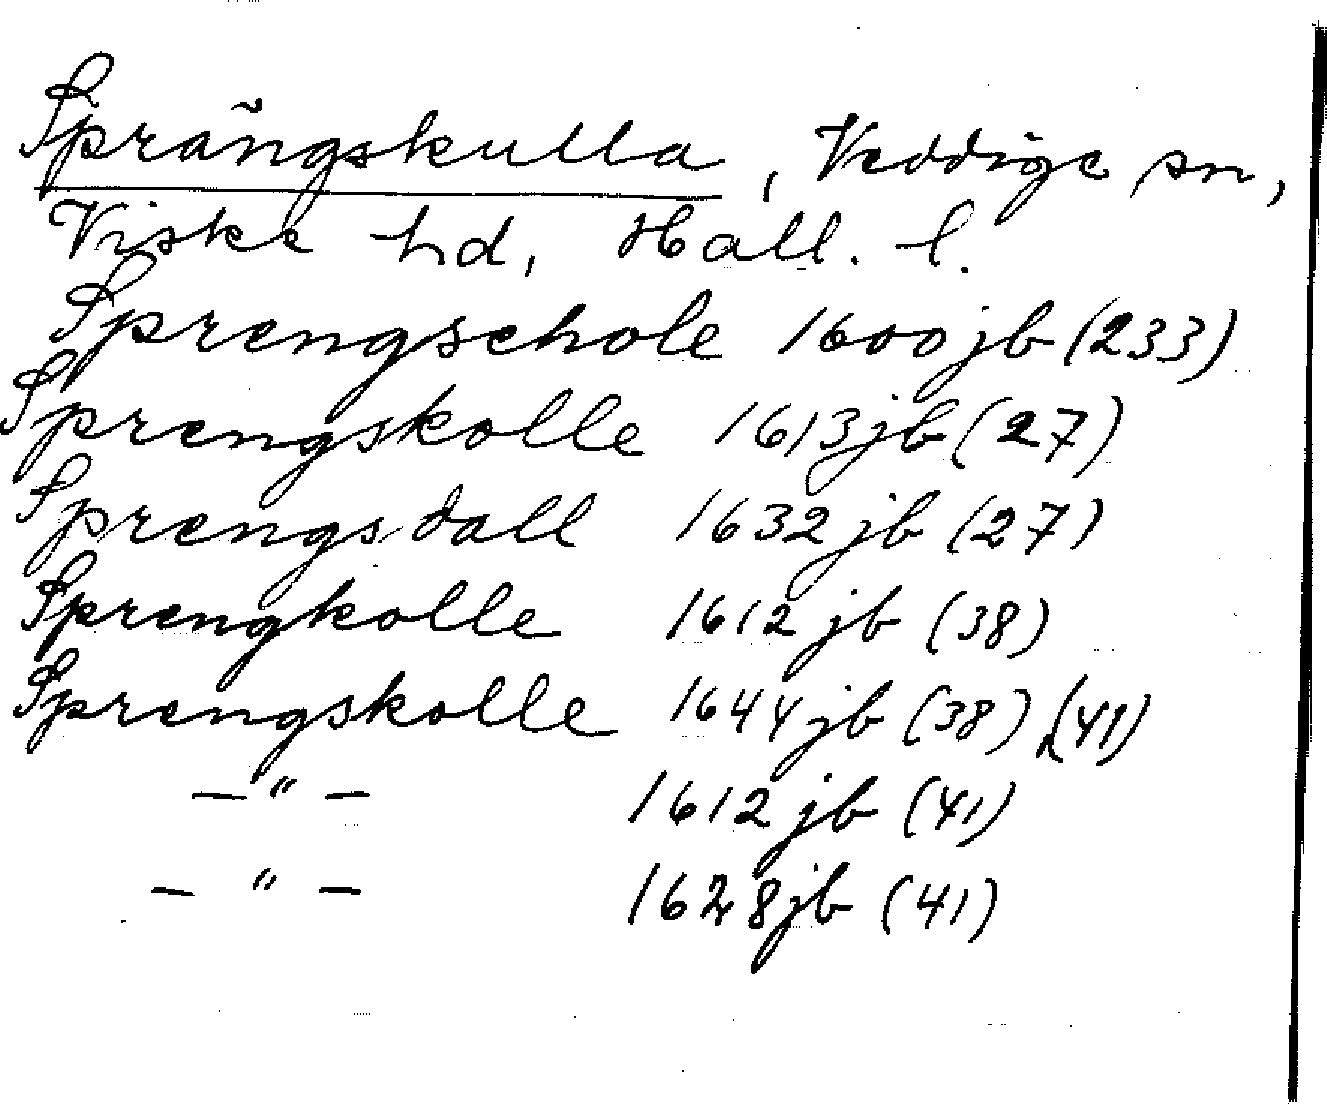 Sprängskulla, Veddige sn,
Viske hd, Hall. l.
Sprengschole 1600 jb (233)
Sprengskolle 1613 jb (27)
Sprengsdall 1632 jb (27)
Sprengkolle 1612 jb (38)
Sprengskolle 1644 jb (38), (41)
— " — 1612 jb (41)
— " — 1628 jb (41)